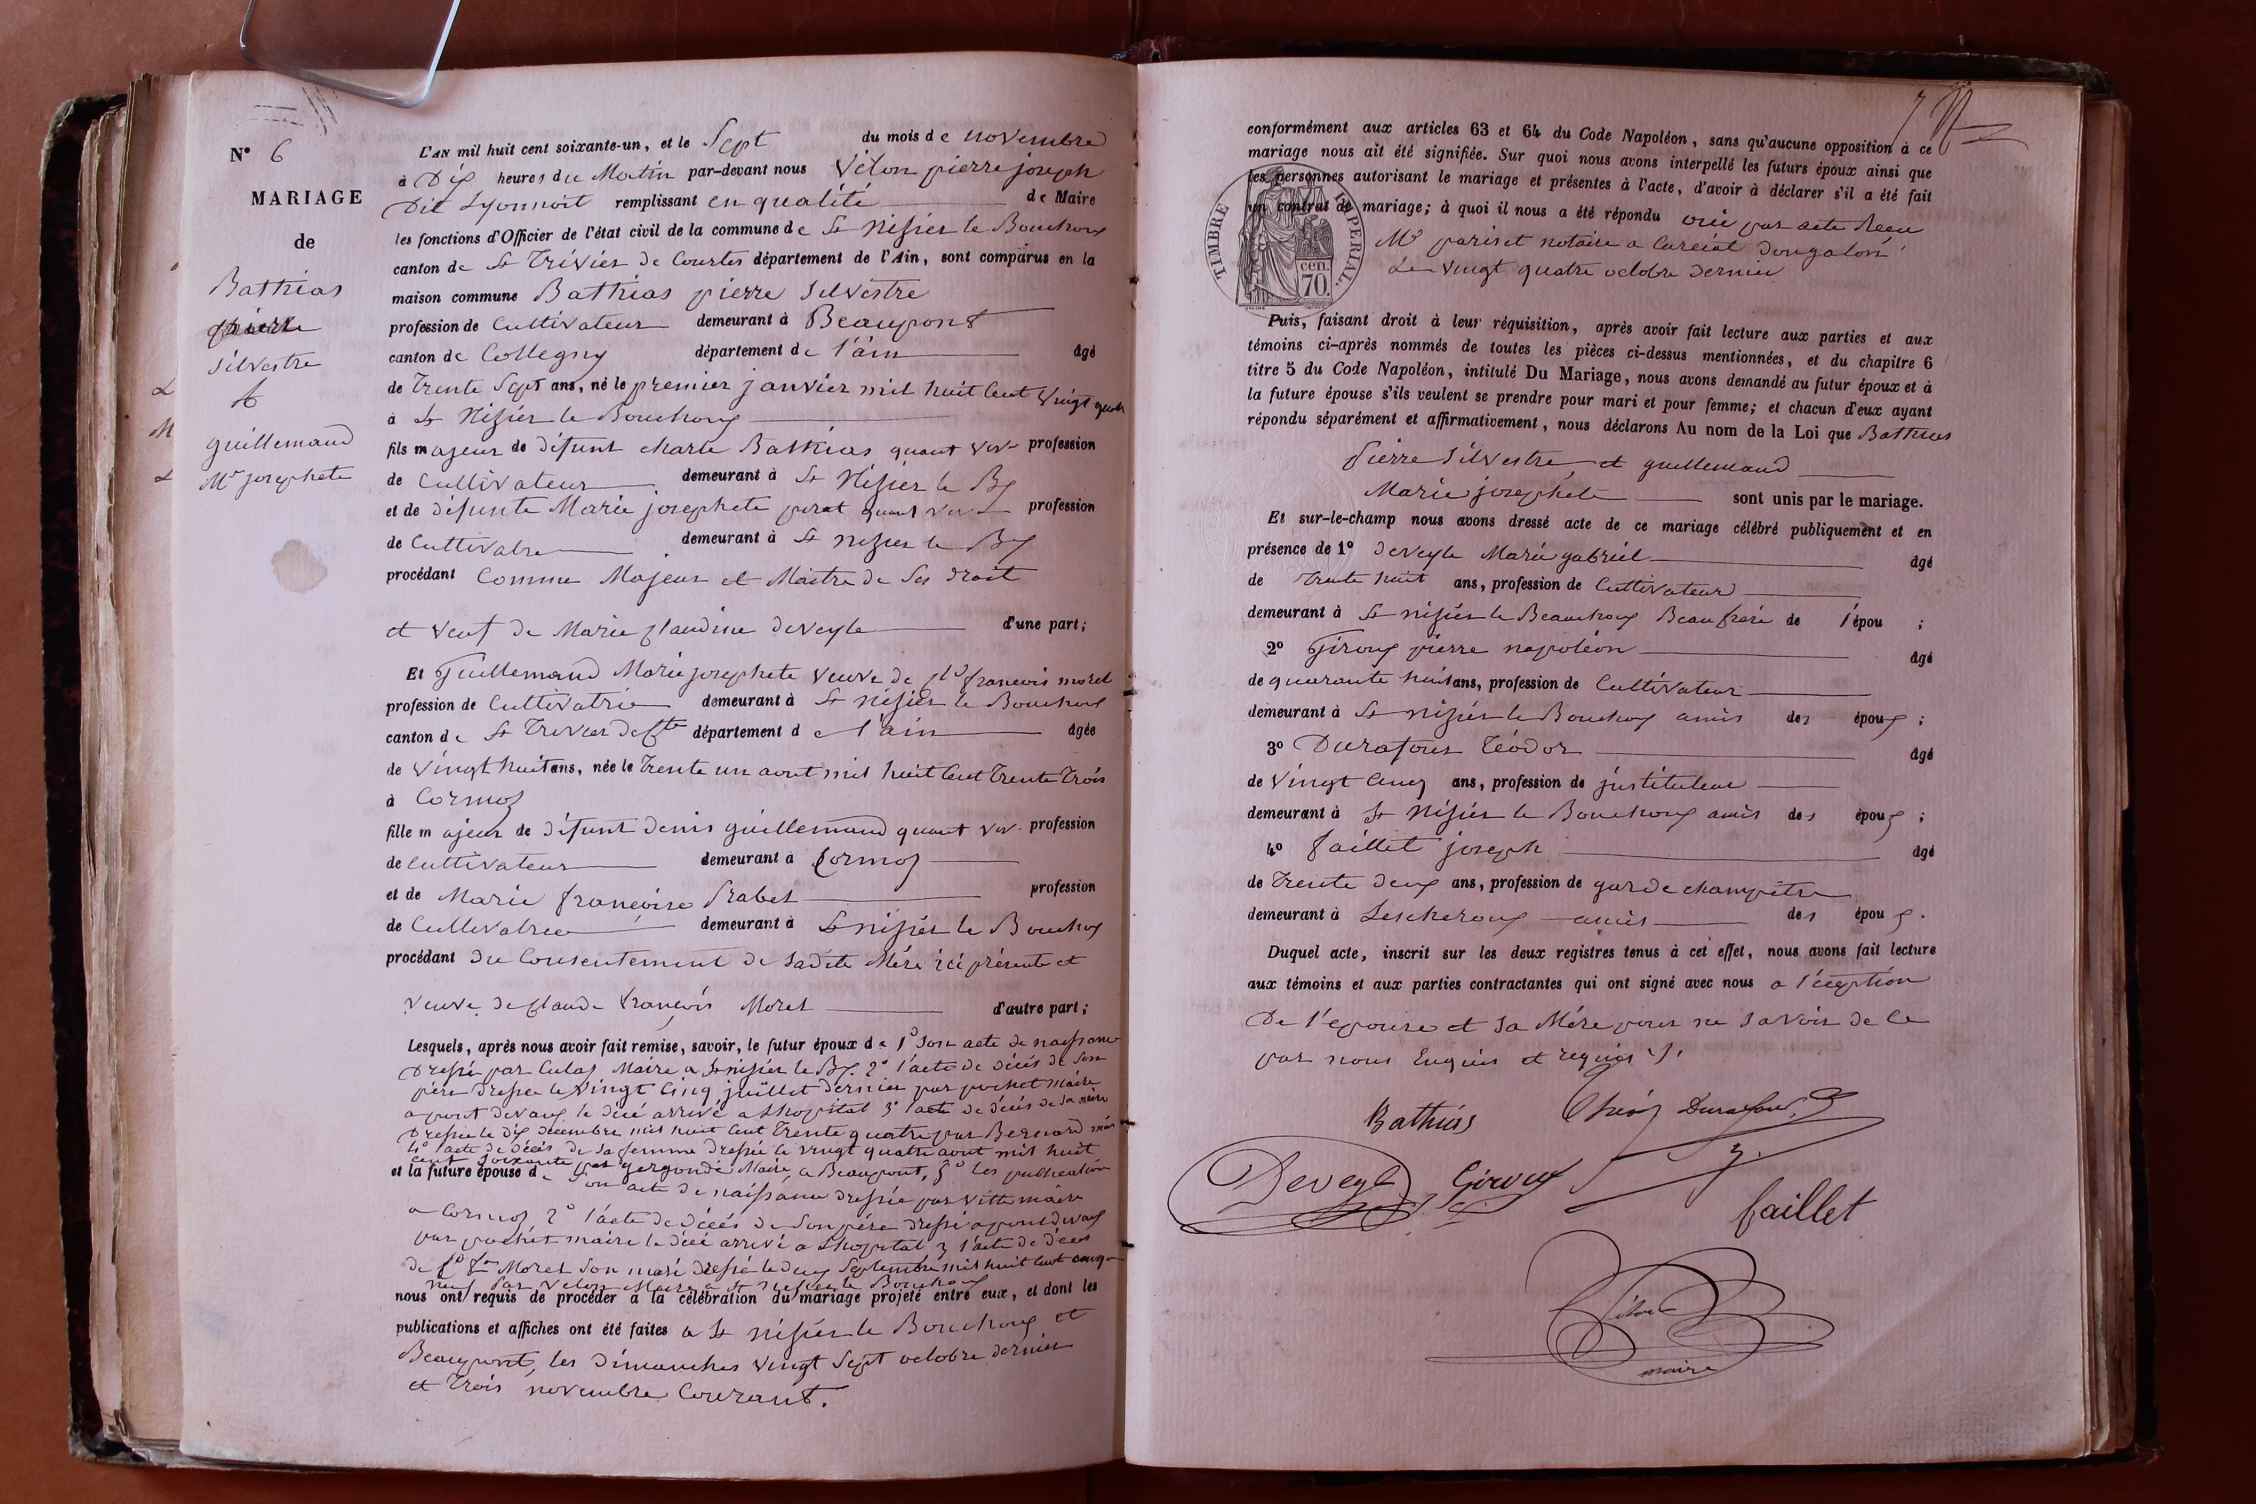 N° 6
MARIAGE
de
Bathias
pierre
silvestre
&
guillemand
Mie josephete
L'AN mil huit cent soixante-un, et le Sept du mois de novembre
à Dix heures du Matin par-devant nous Vélon pierre joseph
Dit Lyonnoit remplissant en qualité de Maire
les fonctions d'Officier de l'état civil de la commune de St Nisier le Bouchoux
canton de St Trivier de Courtes département de l'Ain, sont comparus en la
maison commune Bathias pierre silvestre
profession de Cultivateur demeurant à Beaupont
canton de Collegny département de l'ain âgé
de Trente Sept ans, né le premier janvier mil huit Cent Vingt quatre
à St Nisier le Bouchoux
fils majeur de défunt charle Bathias quant viv. profession
de Cultivateur demeurant à St Nisier le Bx
et de défunte Marie josephete purat quant viv. profession
de Cultivatre demeurant à St nizier le Bx
procédant Comme Majeur et Maitre de Ses droit
et veuf de Marie Claudine deveyle d'une part;
Et Guillemand Marie josephete veuve de Cld françois morel
profession de Cultivatrie demeurant à St nisier le Bouchoux
canton de St Trivier de Cte département de l'ain âgée
de Vingt huit ans, née le Trente un aout mil huit Cent Trente Trois
à Cormoz
fille majeur de défunt denis guillemand quant viv. profession
de Cultivateur demeurant à Cormoz
et de Marie françoise Prabel profession
de Cultivatrice demeurant à St nisier le Bouchoux
procédant du Consentement de Sadite Mére ici présente et
veuve de Claude françois Morel d'autre part;
Lesquels, après nous avoir fait remise, savoir, le futur époux de 1° Son acte de naissance
Dressé par Culas Maire a St nisier le Bx. 2° l'acte de décés de Son
pére dressée le vingt Cinq juillet dernier par pochet maire
a pont devaux le décé arrivé a Lhopital 3° l'acte de décés de Sa mére
Dressée le dix décembre mil huit Cent Trente quatre par Bernard
4° l'acte de décés de Sa femme dressée le vingt quatre aout mil huit
cent soixante par gergondé Maire a Beaupont, 5° les publication
et la future épouse de Son acte de naissance dressée par vitte maire
a Cormoz 2° l'acte de décés de Son pére dressé a pont devaux
par pochet maire le décé arrivé a Lhopital 3 l'acte de décés
de Cd fs Morel Son mari dressé le deux Septembre mil huit Cent
neuf par Velon Maire a St nisier le Bouchoux
nous ont requis de procéder à la célébration du mariage projeté entre eux, et dont les
publications et affiches ont été faites a St nisier le Bouchoux et
Beaupont, les Dimanches vingt Sept octobre dernier
et Trois novembre Courant.
conformément aux articles 63 et 64 du Code Napoléon, sans qu'aucune opposition à ce
mariage nous ait été signifiée. Sur quoi nous avons interpellé les futurs époux ainsi que
les personnes autorisant le mariage et présentes à l'acte, d'avoir à déclarer s'il a été fait
un contrat de mariage; à quoi il nous a été répondu oui par acte Recu
Me pariset notaire a Curciat dongalon
Le vingt quatre octobre dernier
TIMBRE IMPERIAL
70 cen.
Puis, faisant droit à leur réquisition, après avoir fait lecture aux parties et aux
témoins ci-après nommés de toutes les pièces ci-dessus mentionnées, et du chapitre 6
titre 5 du Code Napoléon, intitulé Du Mariage, nous avons demandé au futur époux et à
la future épouse s'ils veulent se prendre pour mari et pour femme; et chacun d'eux ayant
répondu séparément et affirmativement, nous déclarons Au nom de la Loi que Bathias
Pierre Silvestre, et guillemand
Marie josephete sont unis par le mariage.
Et sur-le-champ nous avons dressé acte de ce mariage célébré publiquement et en
présence de 1° deveyle Marie gabriel âgé
de Trente huit ans, profession de Cultivateur
demeurant à St nisier le Beauchoux Beau frére de l'épou ;
2° Giroux pierre napoléon âgé
de quarante huit ans, profession de Cultivateur
demeurant à St nizier le Bouchoux amis des époux ;
3° Durafour Téodor âgé
de Vingt Cinq ans, profession de justituteur
demeurant à St Nisier le Bouchoux amis des époux ;
4° faillet joseph âgé
de Trente deux ans, profession de garde champêtre
demeurant à Lescheroux amis des époux.
Duquel acte, inscrit sur les deux registres tenus à cet effet, nous avons fait lecture
aux témoins et aux parties contractantes qui ont signé avec nous a l'éception
De l'epouse et Sa Mére pour ne Savoir de Ce
par nous Enquis et requis
Bathias
Durafour
Deveyle
Giroux
faillet
Vélon
maire